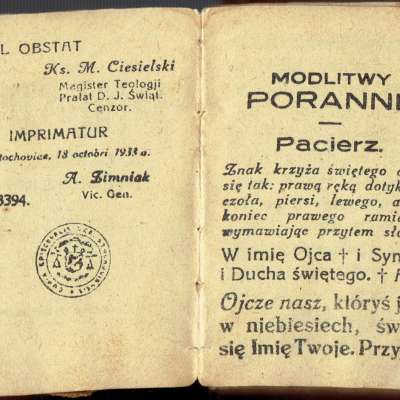 L OBSTAT
Ks. M. Ciesielski
Magister Teologji
Prałat D. J. Świąt.
Cenzor.
IMPRIMATUR
tochoviae, 18 octobri 1933 a.
A. Zimniak
Vic. Gen.
3394.
MODLITWY
PORANN
Pacierz.
Znak krzyża świętego
się tak: prawą ręką dotyk
czoła, piersi, lewego, a
koniec prawego rami
wymawiając przytem sł
W imię Ojca † i Syn
i Ducha świętego. †
Ojcze nasz, któryś j
w niebiesiech, św
się Imię Twoje. Przy